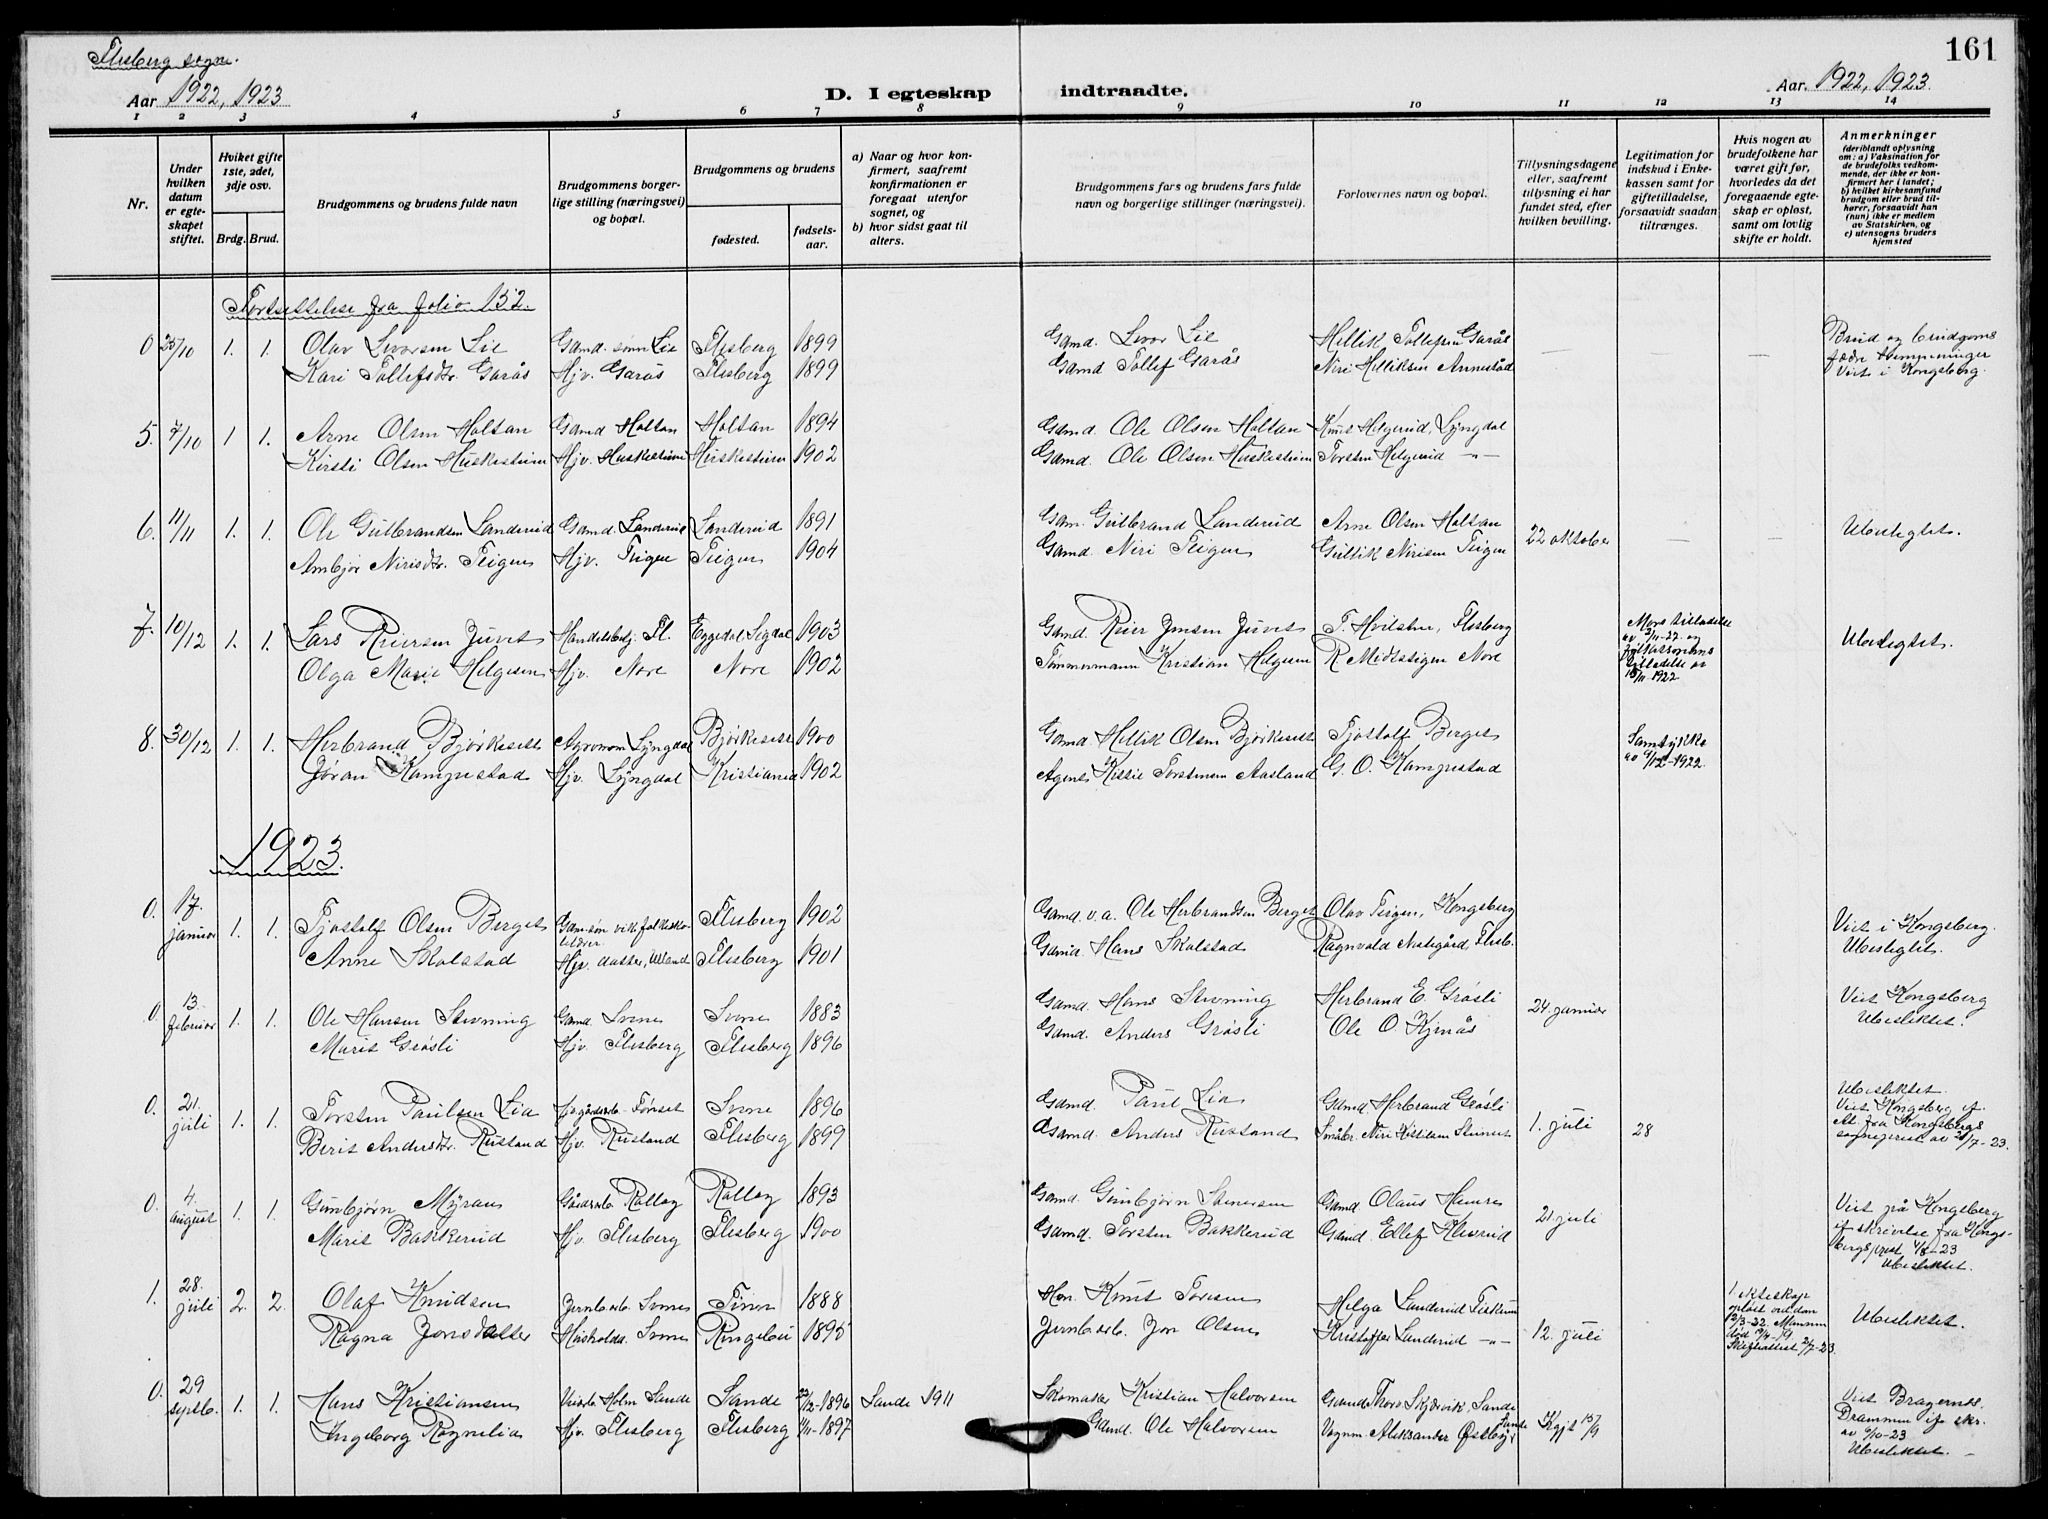 161
Flesberg sogn.
Aar 1922, 1923
D. I egteskap indtraadte.
Aar. 1922, 1923.
1 2 3 4 5 6 7 8 9 10 11 12 13 14
Nr.
Under hvilken datum er egteskapet stiftet.
Hviket gifte 1ste, 2det, 3dje osv.
Brdg. Brud.
Brudgommens og brudens fulde navn
Brudgommens borgerlige stilling (næringsvei) og bopæl.
Brudgommens og brudens
fødested.
fødselsaar.
a) Naar og hvor konfirmert, saafremt konfirmationen er foregaat utenfor sognet, og
b) hvor sidst gaat til alters.
Brudgommens fars og brudens fars fulde navn og borgerlige stillinger (næringsvei).
Forlovernes navn og bopæl.
Tillysningsdagene eller, saafremt tillysning ei har fundet sted, efter hvilken bevilling.
Legitimation for indskud i Enkekassen samt for giftetilladelse, forsaavidt saadan tiltrænges.
Hvis nogen av brudefolkene har været gift før, hvorledes da det foregaaende egteskap er opløst, samt om lovlig skifte er holdt.
Anmerkninger (deriblandt oplysning om: a) Vaksination for de brudefolks vedkommende, der ikke er konfirmert her i landet; b) hvilket kirkesamfund brudgom eller brud tilhører, forsaavidt han (hun) ikke er medlem av Statskirken, og c) utensogns bruders hjemsted
Fortsettelse fra folio 152.
0 25/10 1. 1. Olav Livorsen Lie Gamd. sønn Lie Flesberg 1899 Gamd. Livor Lie Hellik Tollefsen Garås — — Brud og brudgoms
Kari Tollefsdtr. Garås Hjv. Garås Flesberg 1899 Gamd Tollef Garås Niri Helliksen Annestad
Viet i Kongsberg.
5. 7/10 1 1. Arne Olsen Holtan Gamd Holtan Holtan 1894 Gamd. Ole Olsen Holtan Knut Helgerud, Lyngdal
Kirsti Olsen Huskestuen Hjv. Huskestuen Huskestuen 1902 Gamd. Ole Olsen Huskestuen Torsten Helgerud —"—
6. 11/11 1. 1. Ole Gulbrandsen Landerud Gamd. Landerud Landerud 1891 Gam. Gulbrand Landerud Arne Olsen Holtan 22 oktober — — Ubeslegtet.
Ambjør Nirisdtr. Teigen Hjv. Teigen Teigen 1904 Gamd. Niri Teigen Gullik Nirisen Teigen
7. 10/12 1. 1. Lars Reiersen Juvet Handelsbetj. Fl. Eggedal, Sigdal 1903 Gamd. Reier Jensen Juvet T. Hvilsten, Flesberg Ubeslegtet.
Olga Marie Helgesen Hjv. Nore Nore 1902 Tømmermann Kristian Helgesen R Midtstigen Nore
15/11-1922
8. 30/12 1. 1. Herbrand Bjørkeset Agronom Lyngdal Bjørkeset 1900 Gamd. Hellik Olsen Bjørkeset Tjostolf Berget Samtykke
Jøran Kampestad Hjv. Lyngdal Kristiania 1902 Agent Kittil Torstensen Aasland G. O. Kampestad av 6/12-1922.
1923.
0. 17. januar 1. 1. Tjostolf Olsen Berget Flesberg 1902 Gamd. v.a. Ole Herbrandsen Berget Olav Teigen, Kongsberg Viet i Kongsberg.
Anne Skolstad Flesberg 1901 Gamd. Hans Skolstad Ragnvald Nategård, Flesb. Ubeslegtet.
0. 13. februar 1. 1. Ole Hansen Stevning Gamd. Svene Svene 1883 Gamd. Hans Stevning Herbrand E. Grøsli 24. januar Viet Kongsberg
Marit Grøsli Hjv. Flesberg Flesberg 1896 Gamd. Anders Grøsli Ole O. Kjemås Ubeslektet.
0. 21. juli 1. 1. Torsten Paulsen Lia Svene 1896 Gamd. Paul Lia Gamd. Herbrand Grøsli 1. juli 28 Ubeslektet.
Berit Andersdtr. Rustand Hjv. Rustand Flesberg 1899 Gamd. Anders Rustand Viet Kongsberg if. At. fra Kongsbergs sogneprest av 21/7-23.
0. 4. august 1. 1. Gunbjørn Myran Gårdsarb. Rollag Rollag 1893 Gamd. Gunbjørn Steinersen Gamd Olaus Hamre 21. juli Viet på Kongsberg
Marit Bakkerud Hjv. Flesberg Flesberg 1900 Gamd. Torsten Bakkerud Gamd. Ellef Kleverud if skrivelse fra Kongsbergs prest 4/8-23 Ubeslektet.
1. 28. juli 2. 2. Olaf Knudsen Jernbarb. Svene Tinn 1888 Knut Toresen Helga Landerud Fiskum 12. juli 1. ekteskap Ubeslektet.
Ragna Jonsdatter Husholdn. Svene Ringebu 1895 Jernbarb. Jon Olsen Kristoffer Landerud —"— Skifteattest 2/7-23.
0. 29 septb. 1. 1. Hans Kristiansen Holm Sande Sande 22/12-1896 Sande 1911 Skomaker Kristian Halvorsen Gamd Thorv. Skjervik, Sande Kgjt 15/9 Viet Bragernes.
Ingeborg Ragnelia Hjv. Flesberg Flesberg 4/11-1897 Gamd. Ole Halvorsen Vognm. Aleksander Østbye Sande Drammen if skr. av 6/10-23 Ubeslektet. —